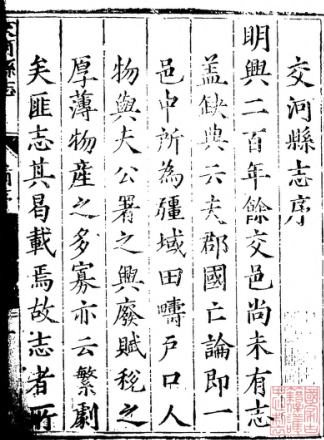 交河縣志序
明興二百年餘交邑尚未有志
盖缺典云夫郡國亡論即一
邑中所為疆域田疇戶口人
物與夫公署之興廢賦稅之
厚薄物產之多寡亦云繁劇
矣匪志其曷載焉故志者所